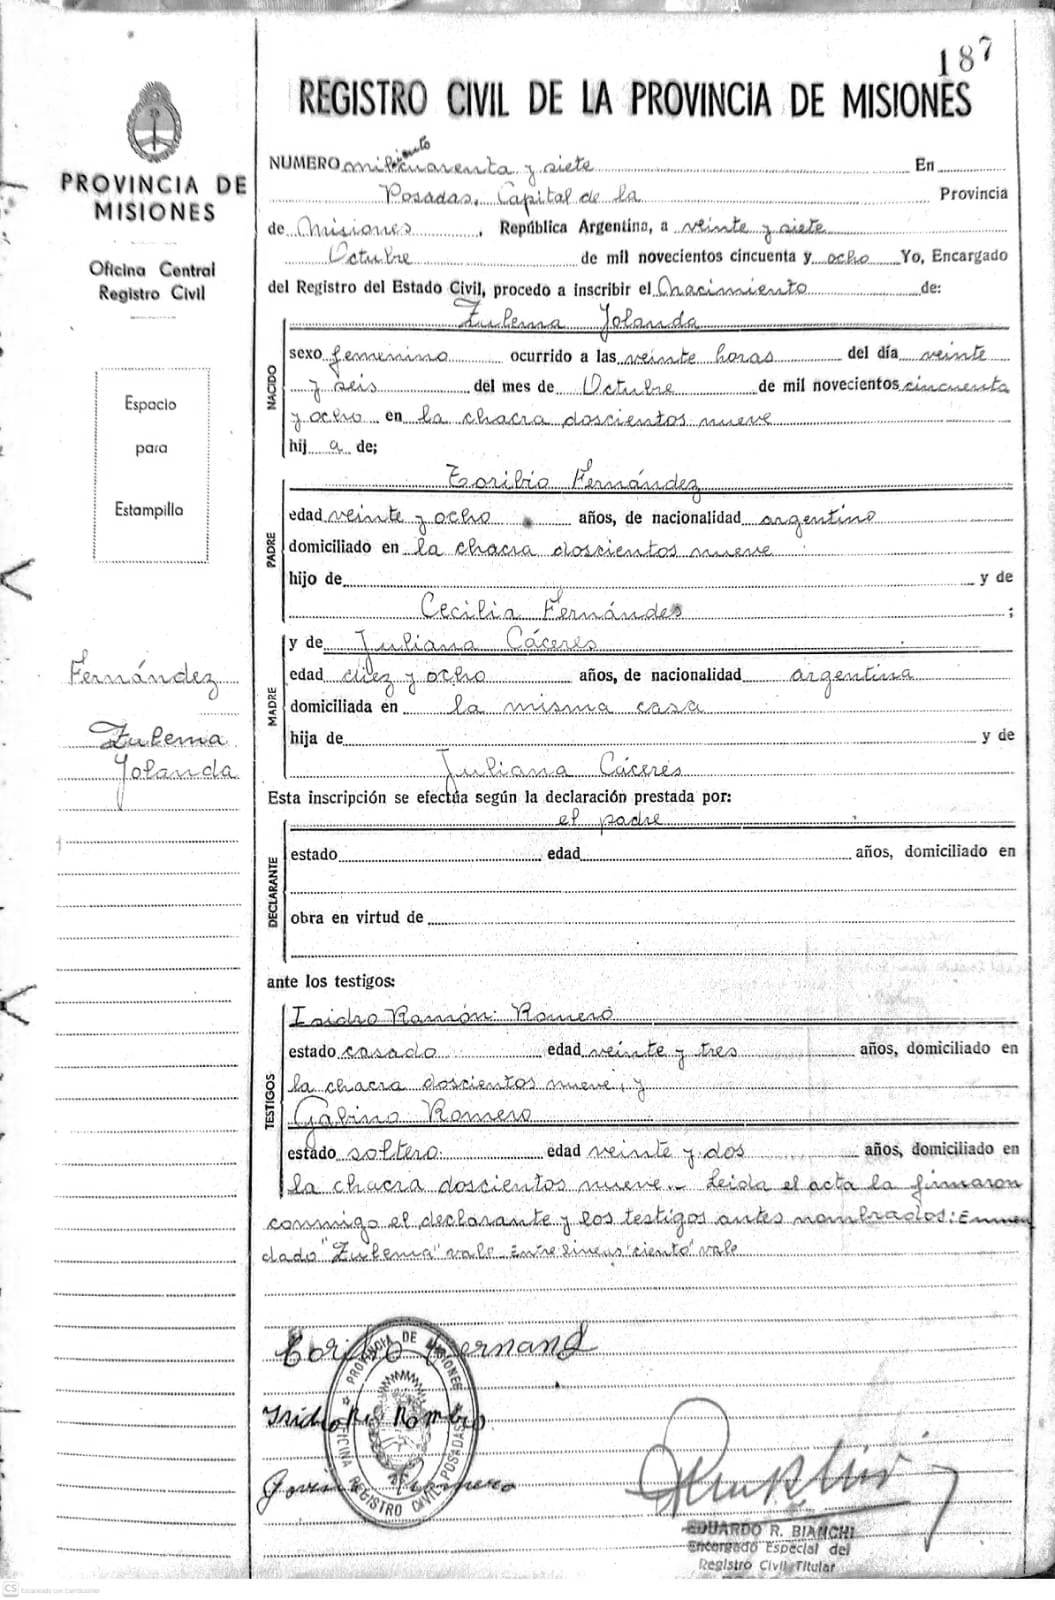 187
REGISTRO CIVIL DE LA PROVINCIA DE MISIONES
PROVINCIA DE
MISIONES
Oficina Central
Registro Civil
Espacio
para
Estampilla
Fernández
Zulema
Yolanda
ciento
NUMERO mil cuarenta y siete En
Posadas, Capital de la Provincia
de Misiones, República Argentina, a veinte y siete
Octubre de mil novecientos cincuenta y ocho Yo, Encargado
del Registro del Estado Civil, procedo a inscribir el Nacimiento de:
NACIDO
Zulema Yolanda
sexo femenino ocurrido a las veinte horas del día veinte
y seis del mes de Octubre de mil novecientos cincuenta
y ocho en la chacra doscientos nueve
hij a de;
PADRE
Toribio Fernández
edad veinte y ocho años, de nacionalidad argentino
domiciliado en la chacra doscientos nueve
hijo de y de
Cecilia Fernández ;
MADRE
y de Juliana Cáceres
edad diez y ocho años, de nacionalidad argentina
domiciliada en la misma casa
hija de y de
Juliana Cáceres
Esta inscripción se efectúa según la declaración prestada por:
DECLARANTE
el padre
estado edad años, domiciliado en
obra en virtud de
ante los testigos:
TESTIGOS
Isidro Ramón Romero
estado casado edad veinte y tres años, domiciliado en
la chacra doscientos nueve, y
Gabino Romero
estado soltero. edad veinte y dos años, domiciliado en
la chacra doscientos nueve.- Leida el acta la firmaron
conmigo el declarante y los testigos antes nombrados: Enmen
dado "Zulema" vale. Entre lineas "ciento" vale
Toribio Fernand
PROVINCIA DE MISIONES
OFICINA REGISTRO CIVIL POSADAS
EDUARDO R. BIANCHI
Encargado Especial del
Registro Civil Titular
CS Escaneado con CamScanner